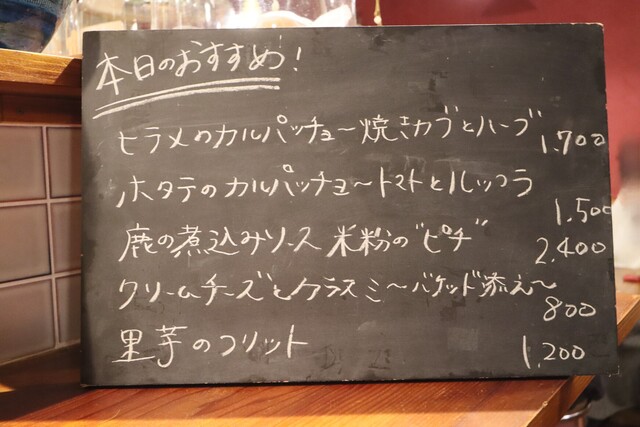 本日のおすすめ!
ヒラメのカルパッチョ〜焼きカブとハーブ 1,700
ホタテのカルパッチョ〜トマトとルッコラ 1,500
鹿の煮込みソース 米粉の"ピチ" 2,400
クリームチーズとカラスミ〜バケッド添え〜 800
里芋のフリット 1,200